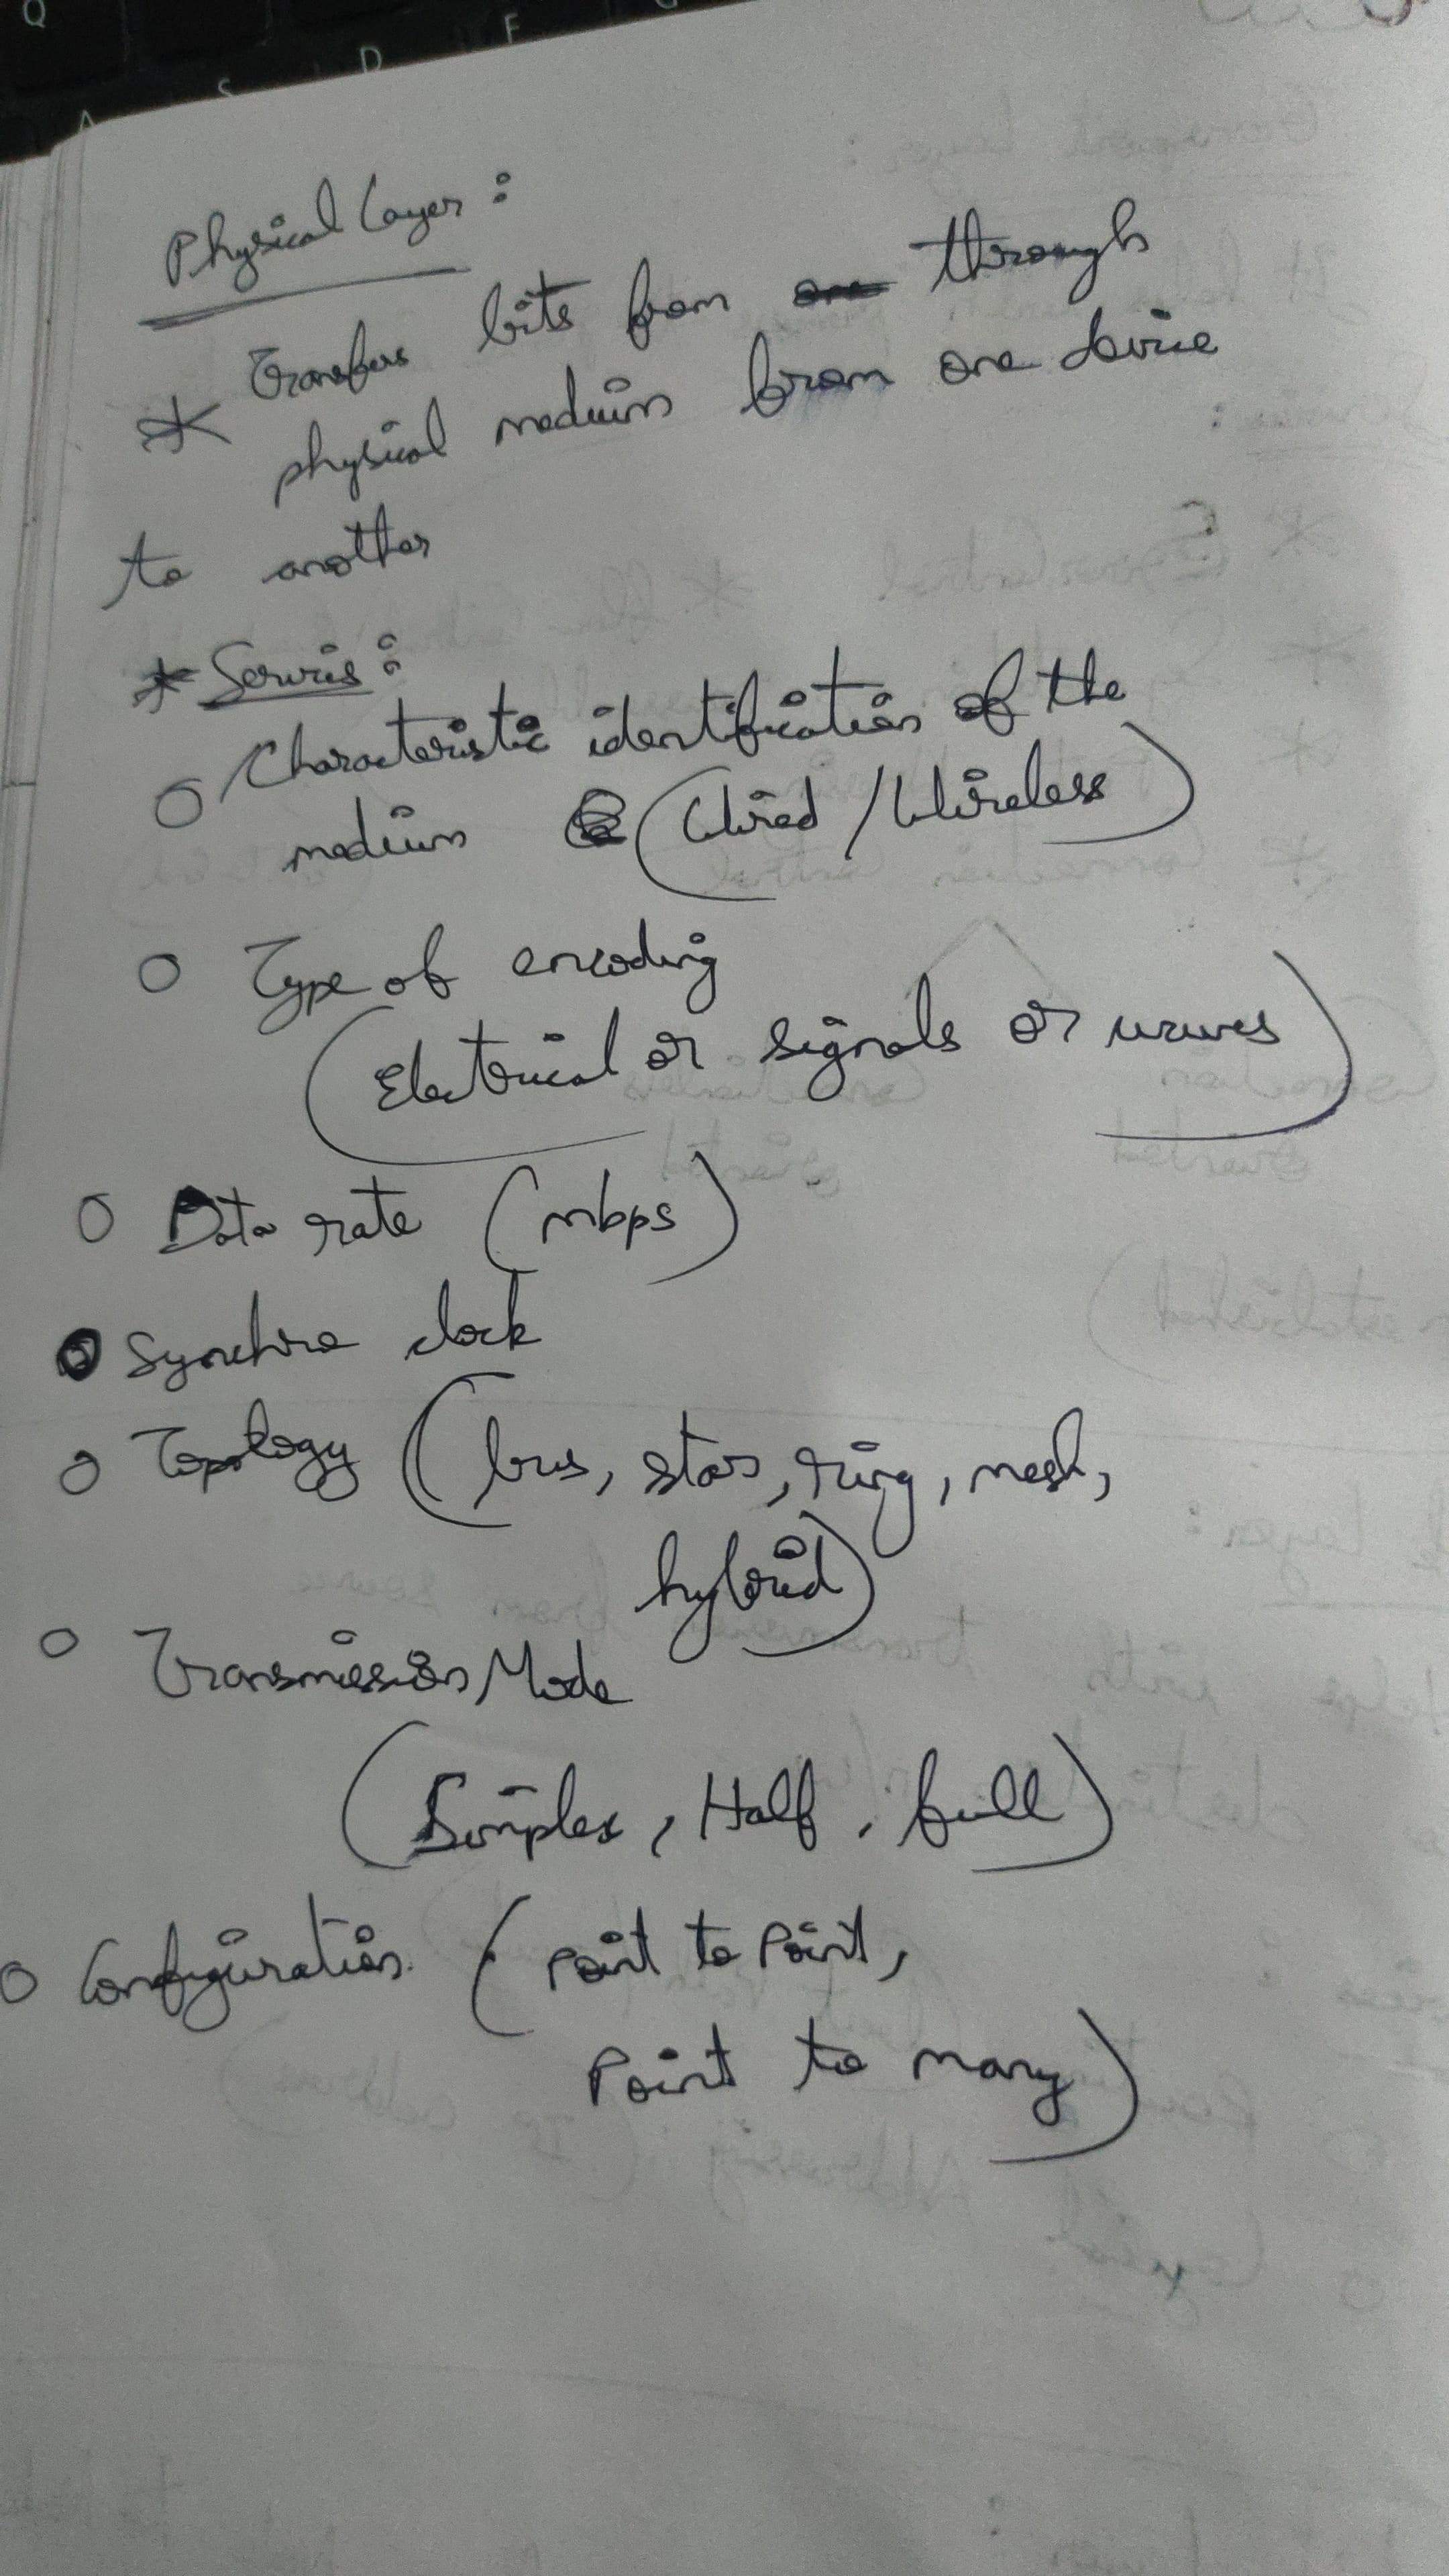 Q
S D F
A
Physical Layer:
* Transfers bits from through
physical medium from one device
to another
* Servies:
O Characteristic identification of the
medium (Wired / Wireless)
O Type of encoding
(Electrical or signals or waves)
O Data rate (mbps)
O Synchro clock
O Topology (bus, star, ring, mesh,
hybrid)
O Transmission Mode
(Simplex, Half, full)
O Configuration (Point to Point,
Point to many)